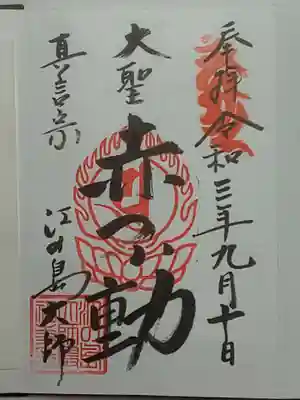 奉拝令和三年九月十日
大聖
赤不動
真言宗
江の島大師